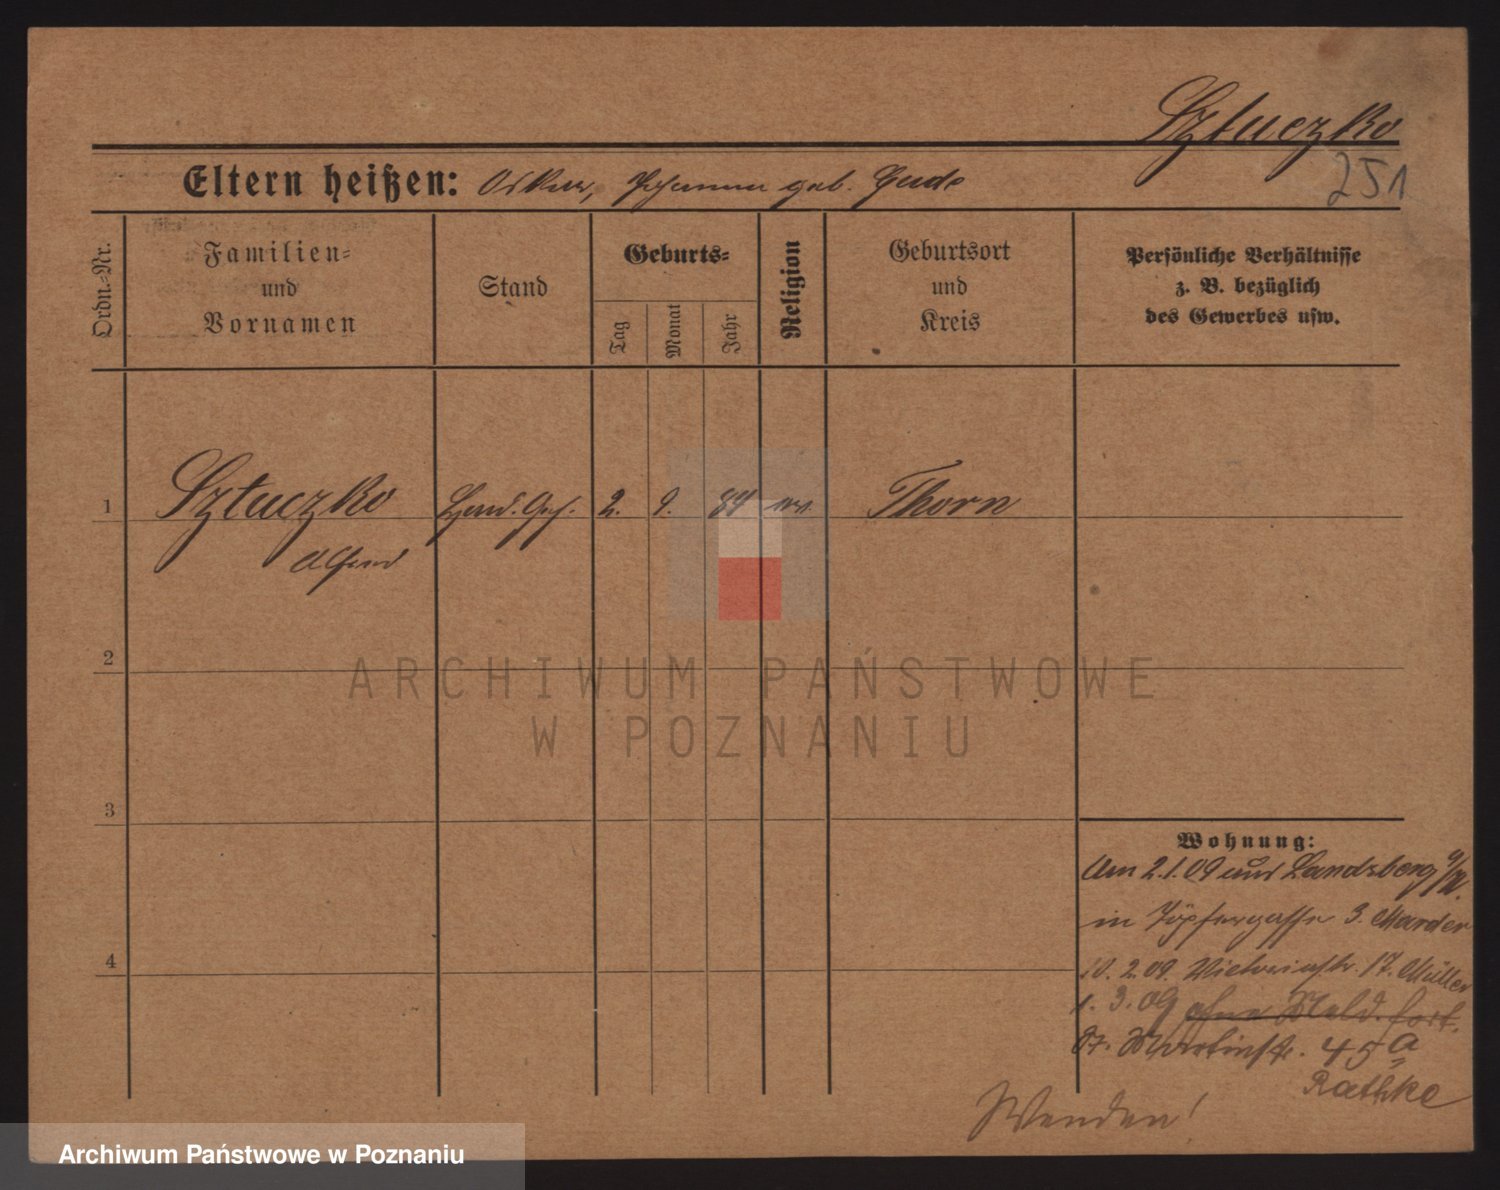 Sztuczko
251
Eltern heißen: Oskar, Johanna geb. Gude
Ordn.-Nr.
Familien-
und
Vornamen
Stand
Geburts-
Tag
Monat
Jahr
Religion
Geburtsort
und
Kreis
Persönliche Verhältnisse
z. B. bezüglich
des Gewerbes usw.
1 Sztuczko Hand. Geh. 2. 9. 84 Thorn
Alfred
2
3
4
Wohnung:
Am 2.1.09 aus Landsberg a/W.
in Töpfergasse 3. Marder
10. 2.09. Victoriastr. 17. Müller
1. 3. 09 ohne Meld. fort.
St. Martinstr. 45a
Rathke
Wenden!
ARCHIWUM PAŃSTWOWE
W POZNANIU
Archiwum Państwowe w Poznaniu